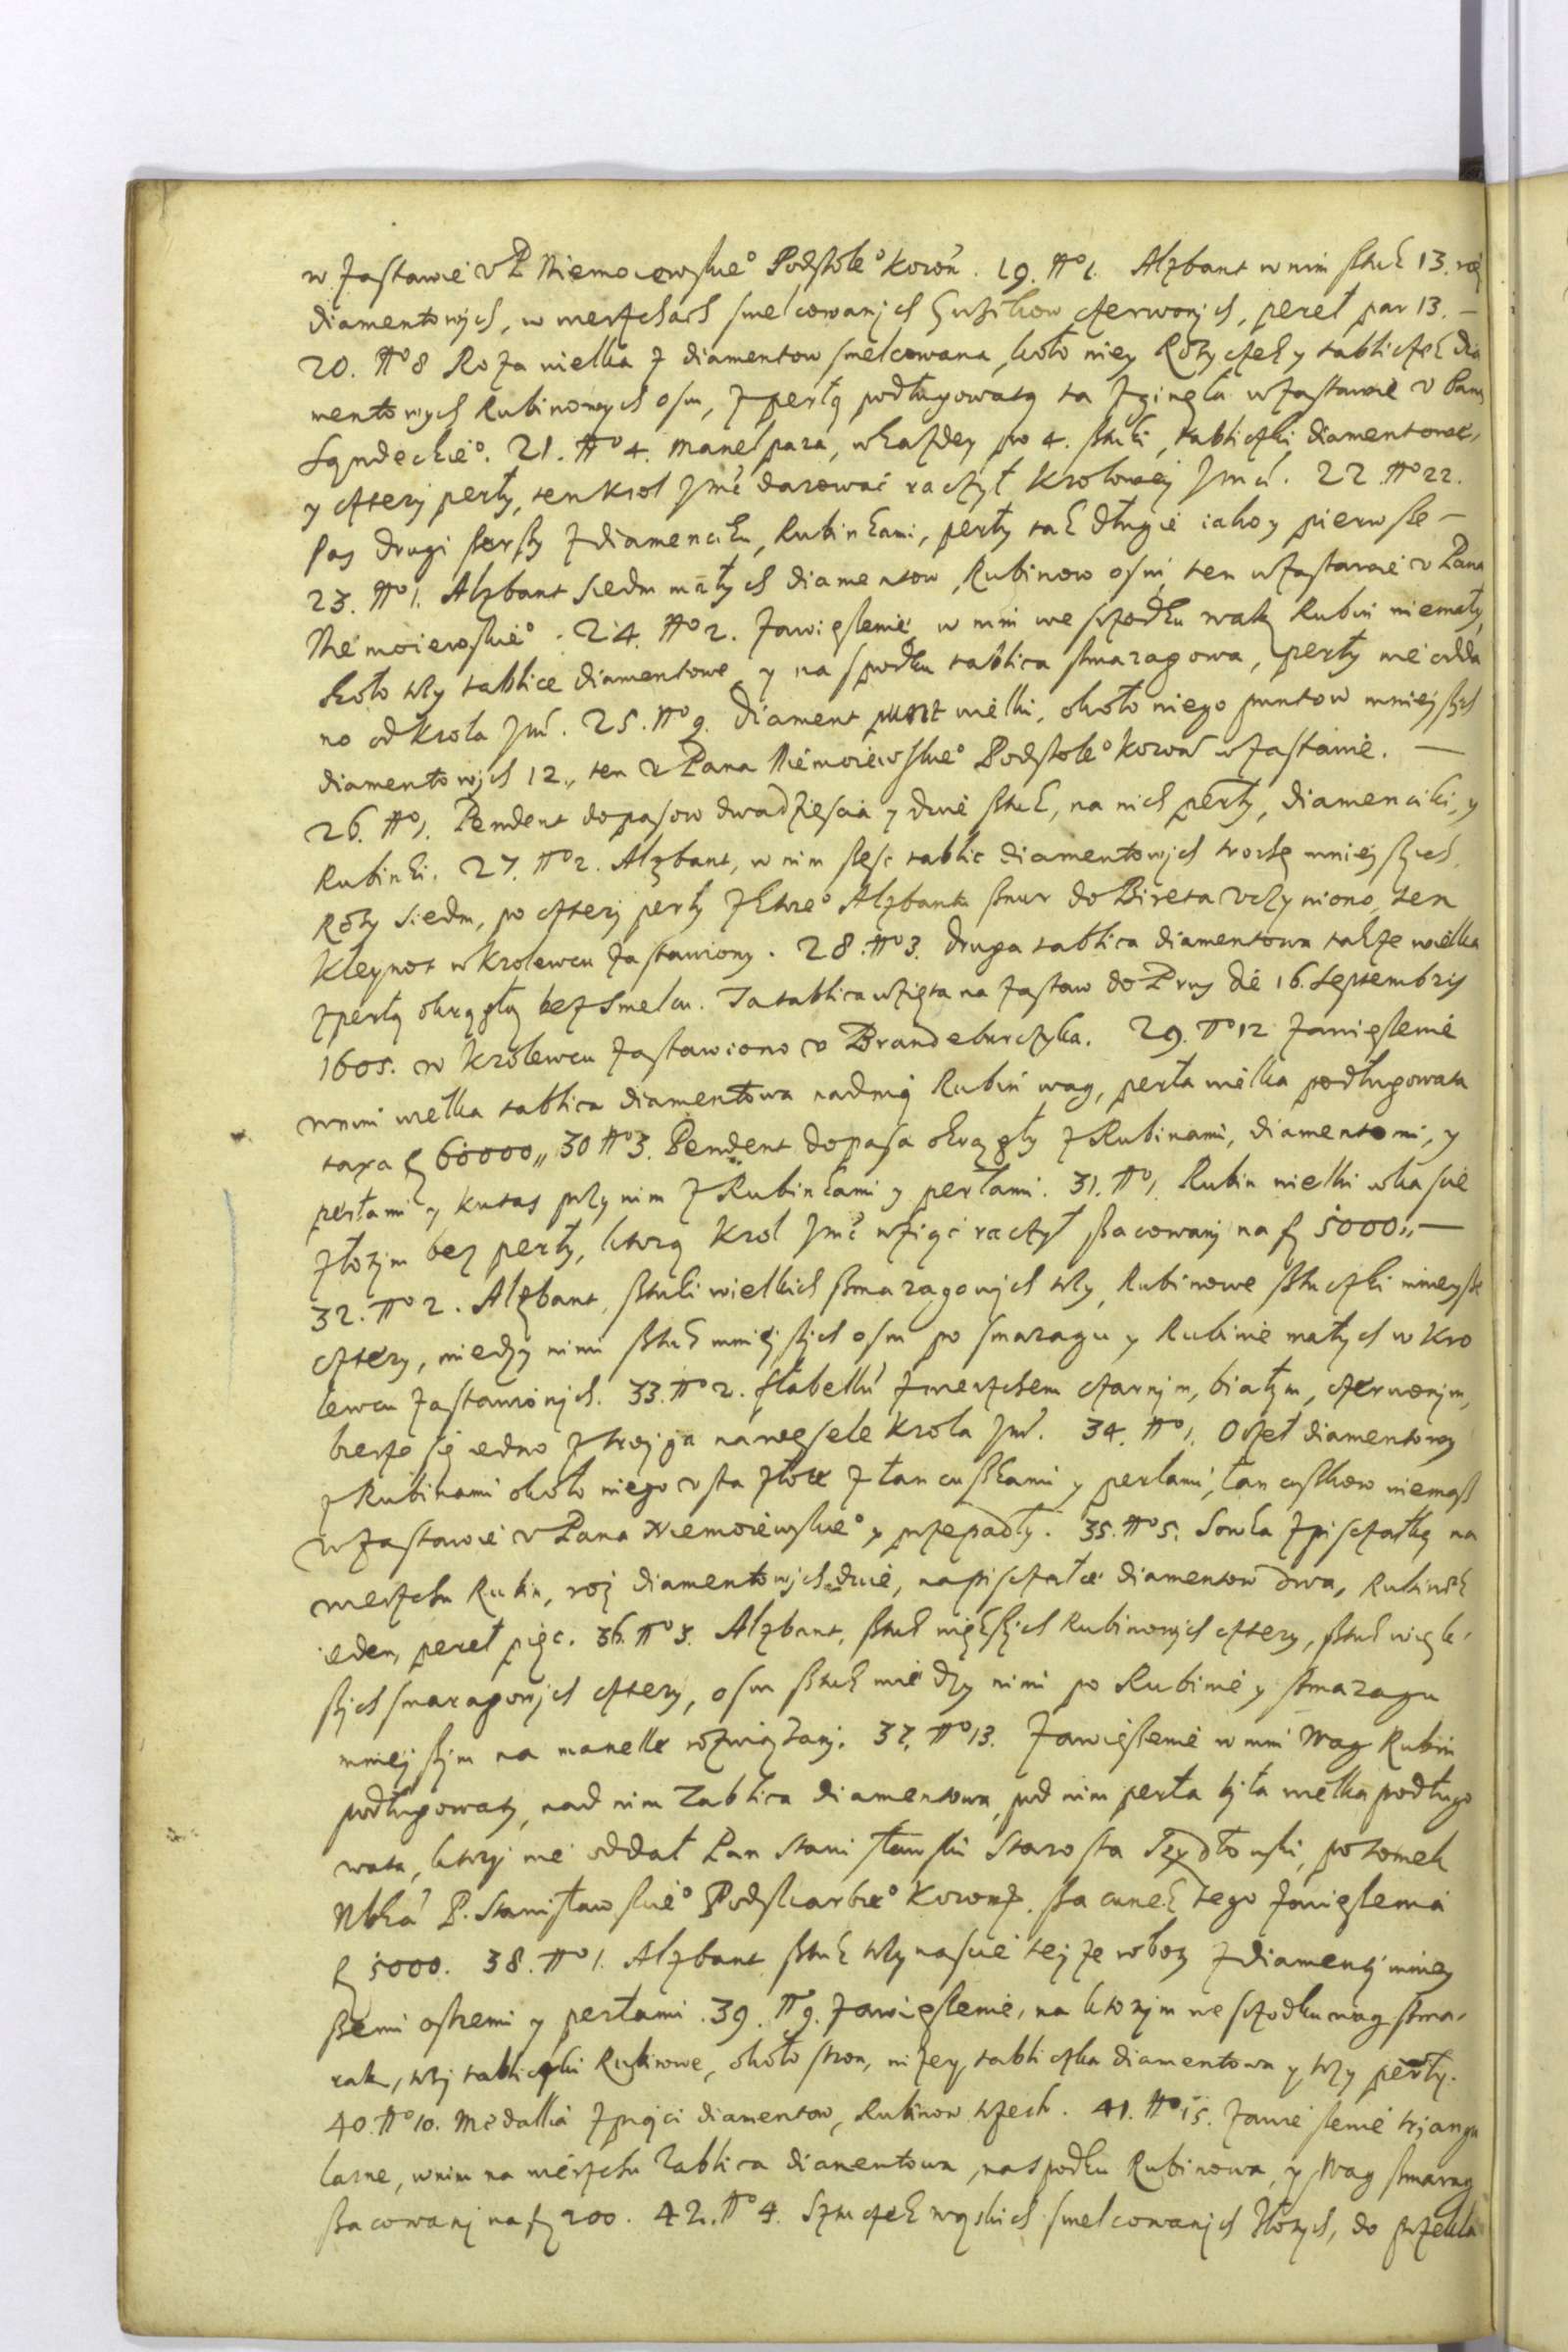 w zastawie v P Niemoiewskieº Podstoleº Koroñ. 19. Nº 1. Alzbant w nim sztuk 13. roż
diamentowych, w wierzchach smelcowanych Guzikow czerwonych, pereł par 13. —
20. Nº 8 Roza wielka z diamentow smelcowana, koło niey Rożyczek y tabliczek dia
mentowych Rubinowych osm, z perłą podługowatą ta zginęła w zastawie v Pana
Sąndeckieº. 21. Nº 4. Manel para, w kazdey po 4. sztuki, tabliczki diamentowe,
y cztery perły, ten Krol Jmć darować raczył Krolowey Jmci. 22. Nº 22.
Pas drugi szerszy z diamenciki, Rubinkami, perły tak długie iako y pierwsze —
23. Nº 1. Alzbant siedm małych diamentow, Rubinow osm, ten w zastawie v Pana
Niemoiewskieº. 24. Nº 2. Zawieszenie, w nim we srzodku wak Rubin niemały,
koło trzy tablice diamentowe y na spodku tablica smaragowa, perły nie odda
no od Krola Jmći. 25. Nº 9. Diament punt wielki, około niego puntow mnieyszych
diamentowych 12., ten v Pana Niemoiewskieº Podstoleº Koroń w zastawie. —
26. Nº 1. Pendent do pasow dwadzieścia y dwie sztuk, na nich perły, diamenciki, y
Rubinki. 27. Nº 2. Alzbant, w nim szesc tablic diamentowych troche mnieyszych,
Roży siedm, po cztery perły z ktoreº Alzbantu sznur do Bireta vczyniono, ten
Kleynot w Krolewcu zastawiony. 28. Nº 3. druga tablica diamentowa takze wielka
z perłą okrągłą bez smelcu. Ta tablica wzięta na zastaw do Prus die 16. Septembris
1605. w Krolewcu zastawiono v Brandeburczyka. 29. Nº 12 Zawieszenie
w nim wielka tablica diamentowa nad nią Rubin wag, perła wielka podługowata
taxa f 60000,, 30 Nº 3. Pendent do pasa okrągły z Rubinami, diamentomi, y
perłami y kutas przy nim z Rubinkami y perłami. 31. Nº 1. Rubin wielki w kascie
złotym bez perły, ktorą Krol Jmć wziąć raczył szacowany na f 5000,, —
32. Nº 2. Alzbant, sztuki wielkich szmaragowych trzy, Rubinowe sztuczki mnieysze
cztery, miedzy nimi sztuk mnieyszych osm po smaragu y Rubinie małych w Kro
lewcu zastawionych. 33. Nº 2. flabellū z wierzchem czarnym, białym, czerwonym,
bierze się iedno z troyga na wesele Krola Jmć. 34. Nº 1. Orzeł diamentowy
z Rubinami około niego vsta złote z łancuszkami y perlami, łancuszkow niemasz
w zastawie v Pana Niemoiewskieº y przepadły. 35. Nº 5. Sowka z piszczałką na
wierzchu Rubin, roż diamentowych dwie, na piszczałce diamentow dwa, Rubinek
ieden, pereł pięc. 36. Nº 3. Alzbant, sztuk większych Rubinowych cztery, sztuk więk-
szych smaragowych cztery, osm sztuk miedzy nimi po Rubinie y szmaragu
mnieyszym na manelle rozwiązany. 37. Nº 13. Zawieszenie w nim wag Rubin
podługowaty, nad nim Tablica diamentowa, pod nim perła była wielka podługo
wata, ktorey nie oddał Pan Stanisławski Starosta Szydłowski, potomek
P. Stanisławskieº Podskarbieº Koronº. szacunek tego zawieszenia
f 5000. 38. Nº 1. Alzbant sztuk trzynascie teyze roboty z diamenty mniey
szemi ostremi y perłami. 39. Nº 9. Zawieszenie, na ktorym we srzodku wag szma-
rak, trzy tabliczki Rubinowe, około stron, nizey tabliczka diamentowa y trzy perły.
40. Nº 10. Medallia z pięci diamentow, Rubinow trzech. 41. Nº 15. Zawieszenie tryangu
larne, w nim na wierzchu Tablica diamentowa, na spodku Rubinowa, y wag szmarag
szacowany na f 200. 42. Nº 4. Sztuczek wąskich smelcowanych złotych, do przekła